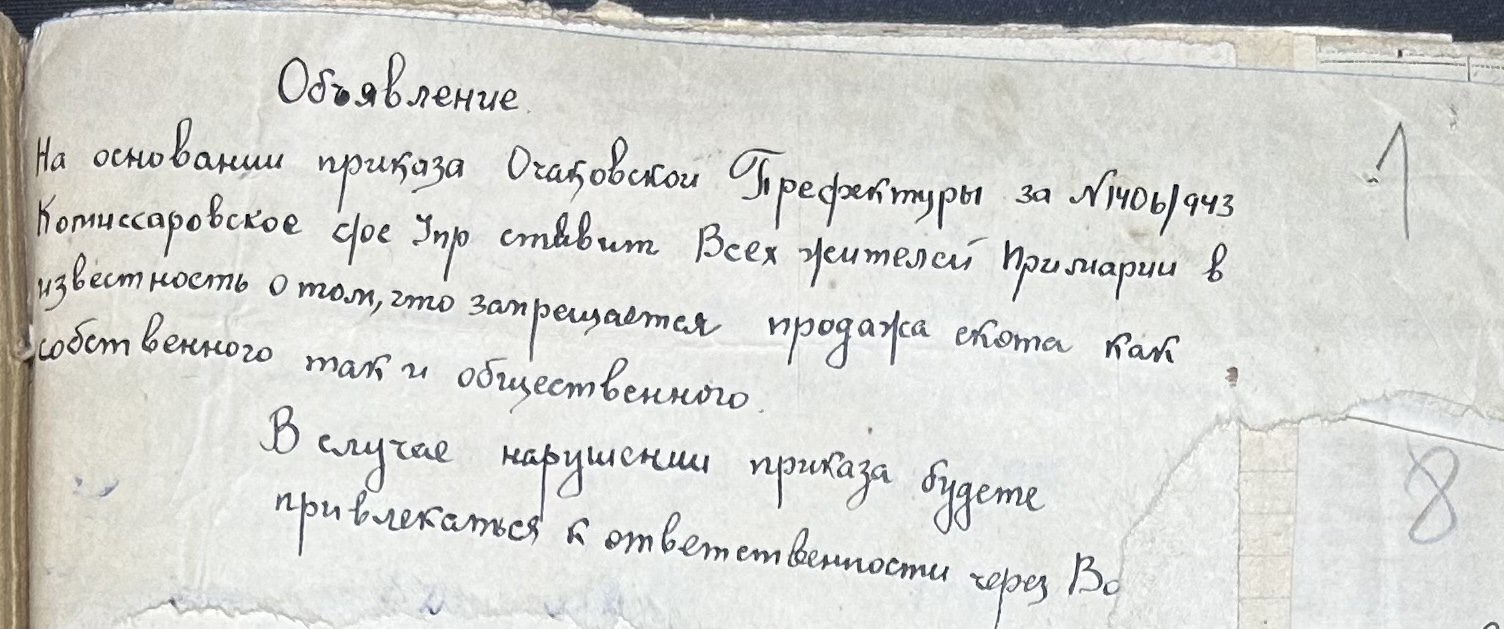 Объявление
На основании приказа Очаковской Префектуры за №1406/943
Комиссаровское с/ое Упр ставит Всех жителей Примарии в
известность о том, что запрещается продажа скота как
собственного так и общественного.
В случае нарушении приказа будете
привлекаться к ответственности через
1
8